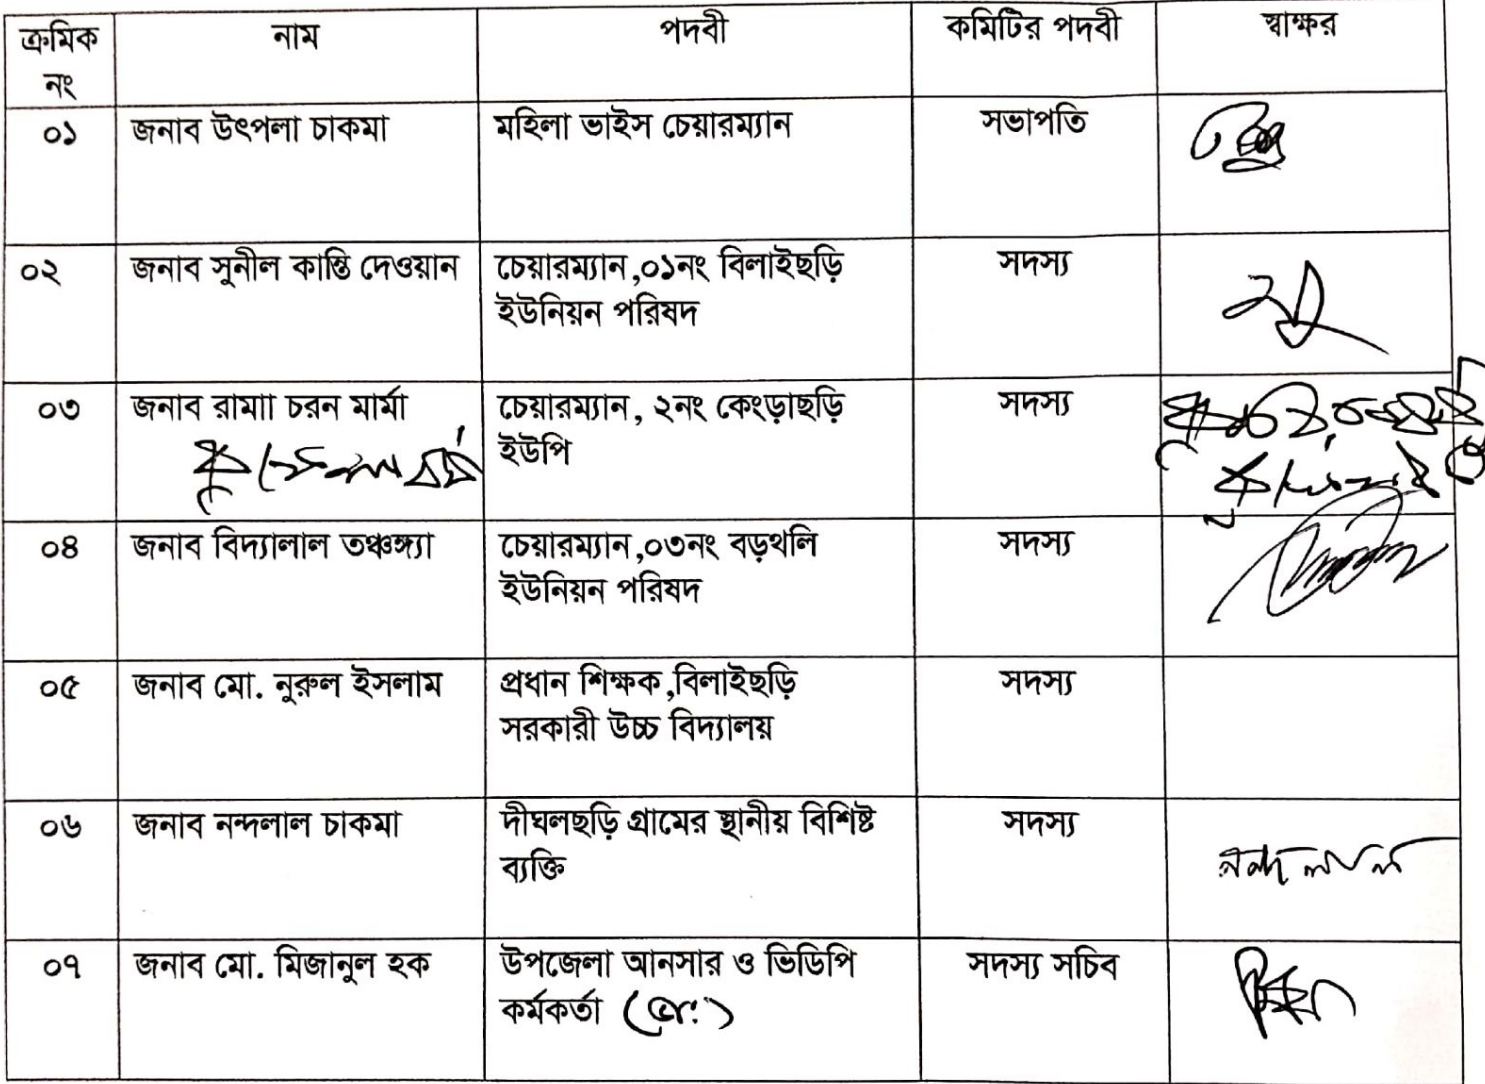 ক্রমিক নং | নাম | পদবী | কমিটির পদবী | স্বাক্ষর
০১ | জনাব উৎপলা চাকমা | মহিলা ভাইস চেয়ারম্যান | সভাপতি
০২ | জনাব সুনীল কান্তি দেওয়ান | চেয়ারম্যান,০১নং বিলাইছড়ি
ইউনিয়ন পরিষদ | সদস্য
০৩ | জনাব রামাা চরন মার্মা | চেয়ারম্যান, ২নং কেংড়াছড়ি
ইউপি | সদস্য
০৪ | জনাব বিদ্যালাল তঞ্চঙ্গ্যা | চেয়ারম্যান,০৩নং বড়থলি
ইউনিয়ন পরিষদ | সদস্য
০৫ | জনাব মো. নুরুল ইসলাম | প্রধান শিক্ষক,বিলাইছড়ি
সরকারী উচ্চ বিদ্যালয় | সদস্য
০৬ | জনাব নন্দলাল চাকমা | দীঘলছড়ি গ্রামের স্থানীয় বিশিষ্ট
ব্যক্তি | সদস্য | নন্দলাল
০৭ | জনাব মো. মিজানুল হক | উপজেলা আনসার ও ভিডিপি
কর্মকর্তা | সদস্য সচিব